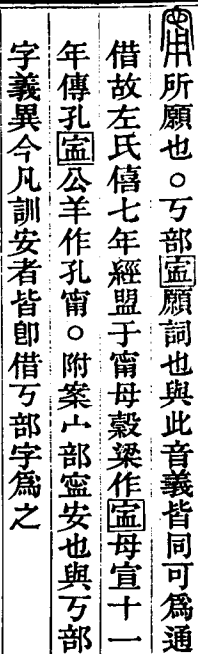 甯所願也○丂部寍願詞也與此音義皆同可爲通
借故左氏僖七年經盟于甯母穀梁作寍母宣十一
年傳孔寍公羊作孔甯○附案宀部寍安也與丂部
字義異今凡訓安者皆卽借丂部字爲之